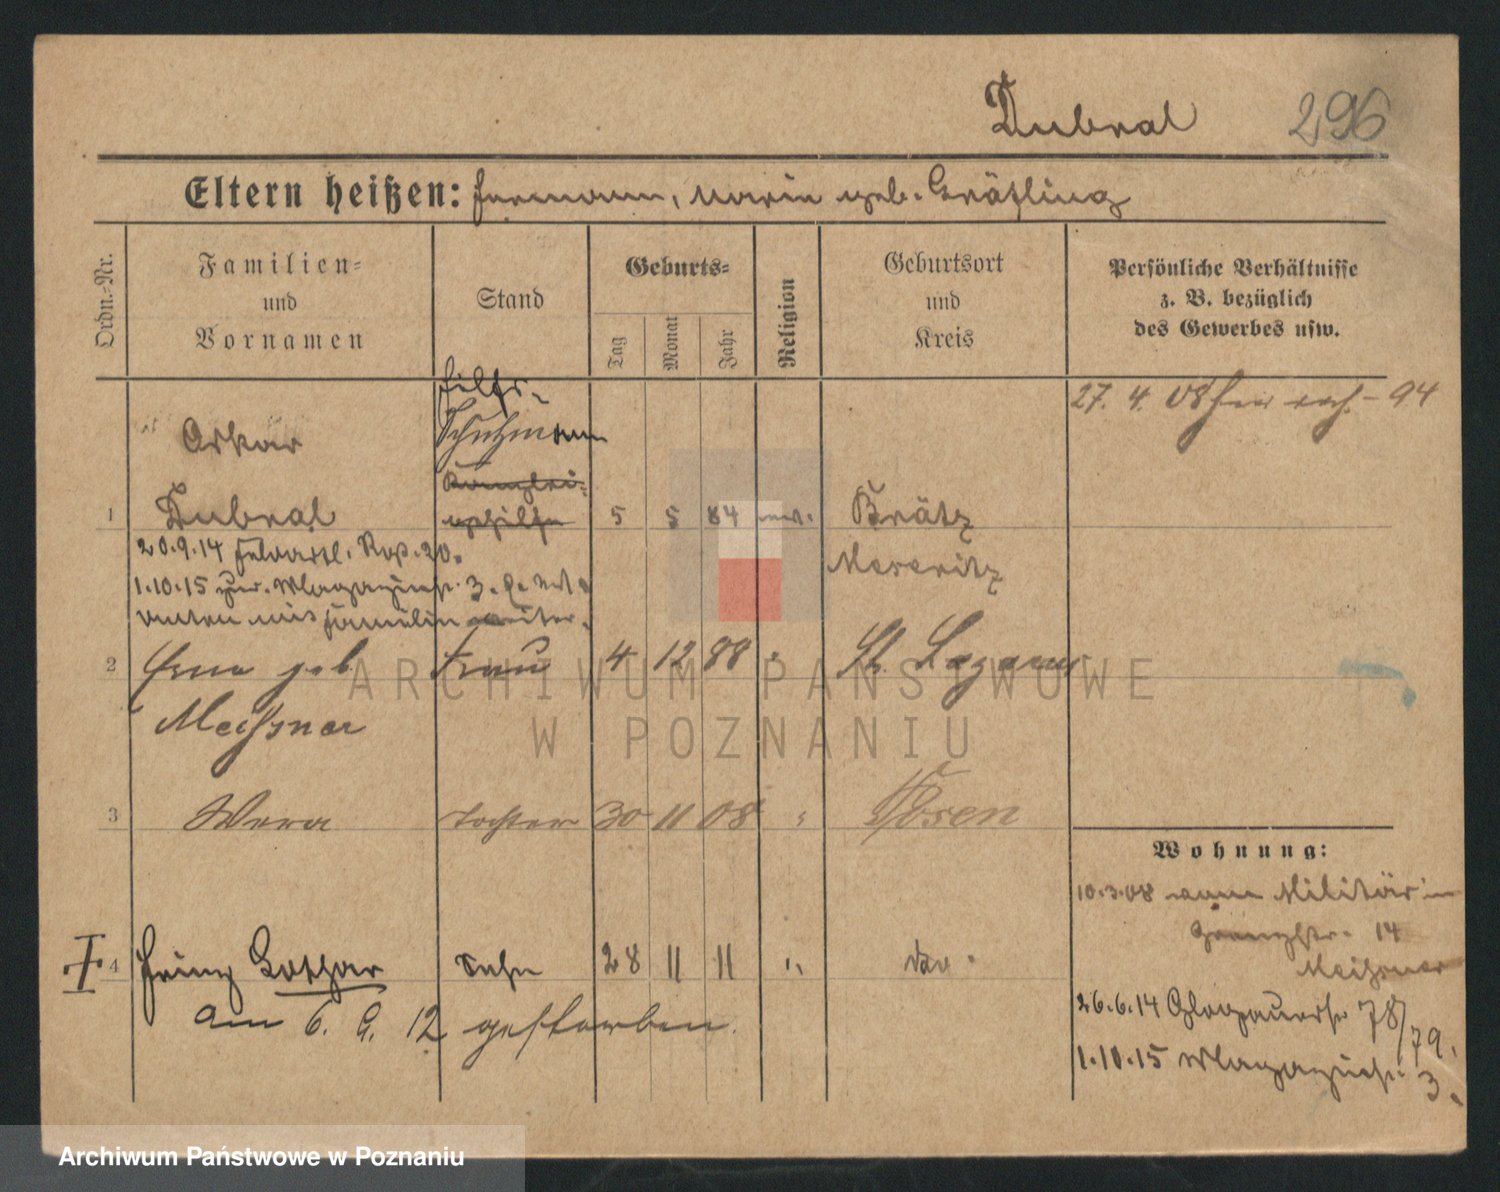 Dubral 296
Eltern heißen: Hermann, Marie geb. Gräfling
Ordn.-Nr.
Familien-
und
Vornamen
Stand
Geburts-
Tag
Monat
Jahr
Religion
Geburtsort
und
Kreis
Persönliche Verhältnisse
z. B. bezüglich
des Gewerbes usw.
27. 4. 08 94
Hilfs-
Schutzmann
Oskar
Kanzlei-
gehilfe
1 Dubral 5 5 84 Brätz
Meseritz
20.9.14 Feldartl. 20.
1.10.15 Magazinstr. 3.
mit Familie weiter.
2 Erna geb. Frau 4 12 88 " St. Lazarus
Meißner
3 Wera Tochter 30 11 08 " Posen
Wohnung:
10.3.08 vom Militär
14
Meißner
4 Heinz Lothar Sohn 28 11 11 "
am 6. 9. 12 gestorben.
26.6.14 Glogauerstr. 78/79.
1.10.15 Magazinstr. 3.
ARCHIWUM PAŃSTWOWE
W POZNANIU
Archiwum Państwowe w Poznaniu